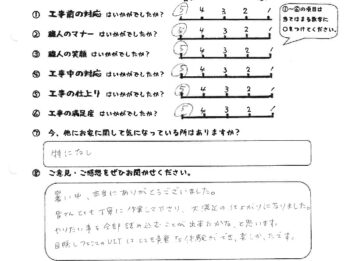 ① 工事前の対応 はいかがでしたか? 5 4 3 2 1
② 職人のマナー はいかがでしたか? 5 4 3 2 1
③ 職人の笑顔 はいかがでしたか? 5 4 3 2 1
④ 工事中の対応 はいかがでしたか? 5 4 3 2 1
⑤ 工事の仕上り はいかがでしたか? 5 4 3 2 1
⑥ 工事の満足度 はいかがでしたか? 5 4 3 2 1
①~⑥の項目は
当てはまる数字に
○をつけてください。
⑦ 今、他にお家に関して気になっている所はありますか?
特になし
⑧ ご意見・ご感想をぜひお聞かせください。
暑い中、本当にありがとうございました。
皆さんとても丁寧に作業して下さり、大満足の仕上がりになりました。
やりたい事を全部詰め込むことが出来たかな、と思います。
目隠しフェンスのDIYはとても貴重な体験ができ、楽しかったです。